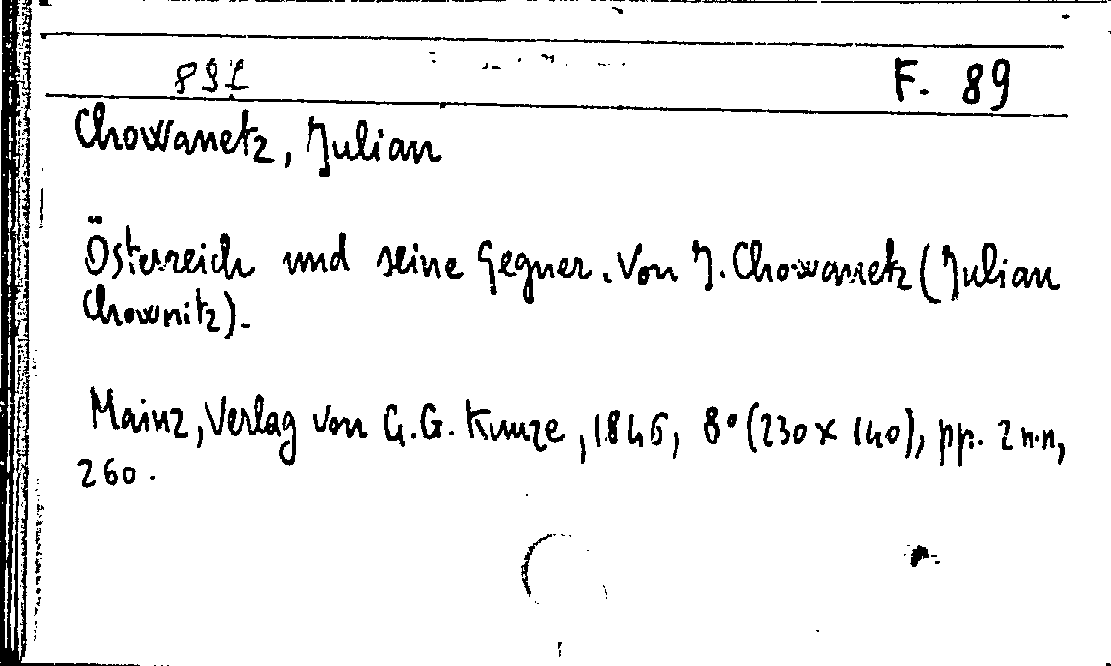 891 F. 89
Chowanetz, Julian
Österreich und seine Gegner. Von J. Chowanetz (Julian
Chownitz).
Mainz, Verlag von G. G. Kunze, 1846, 8° (230 x 140), pp. 2 n.n,
260.